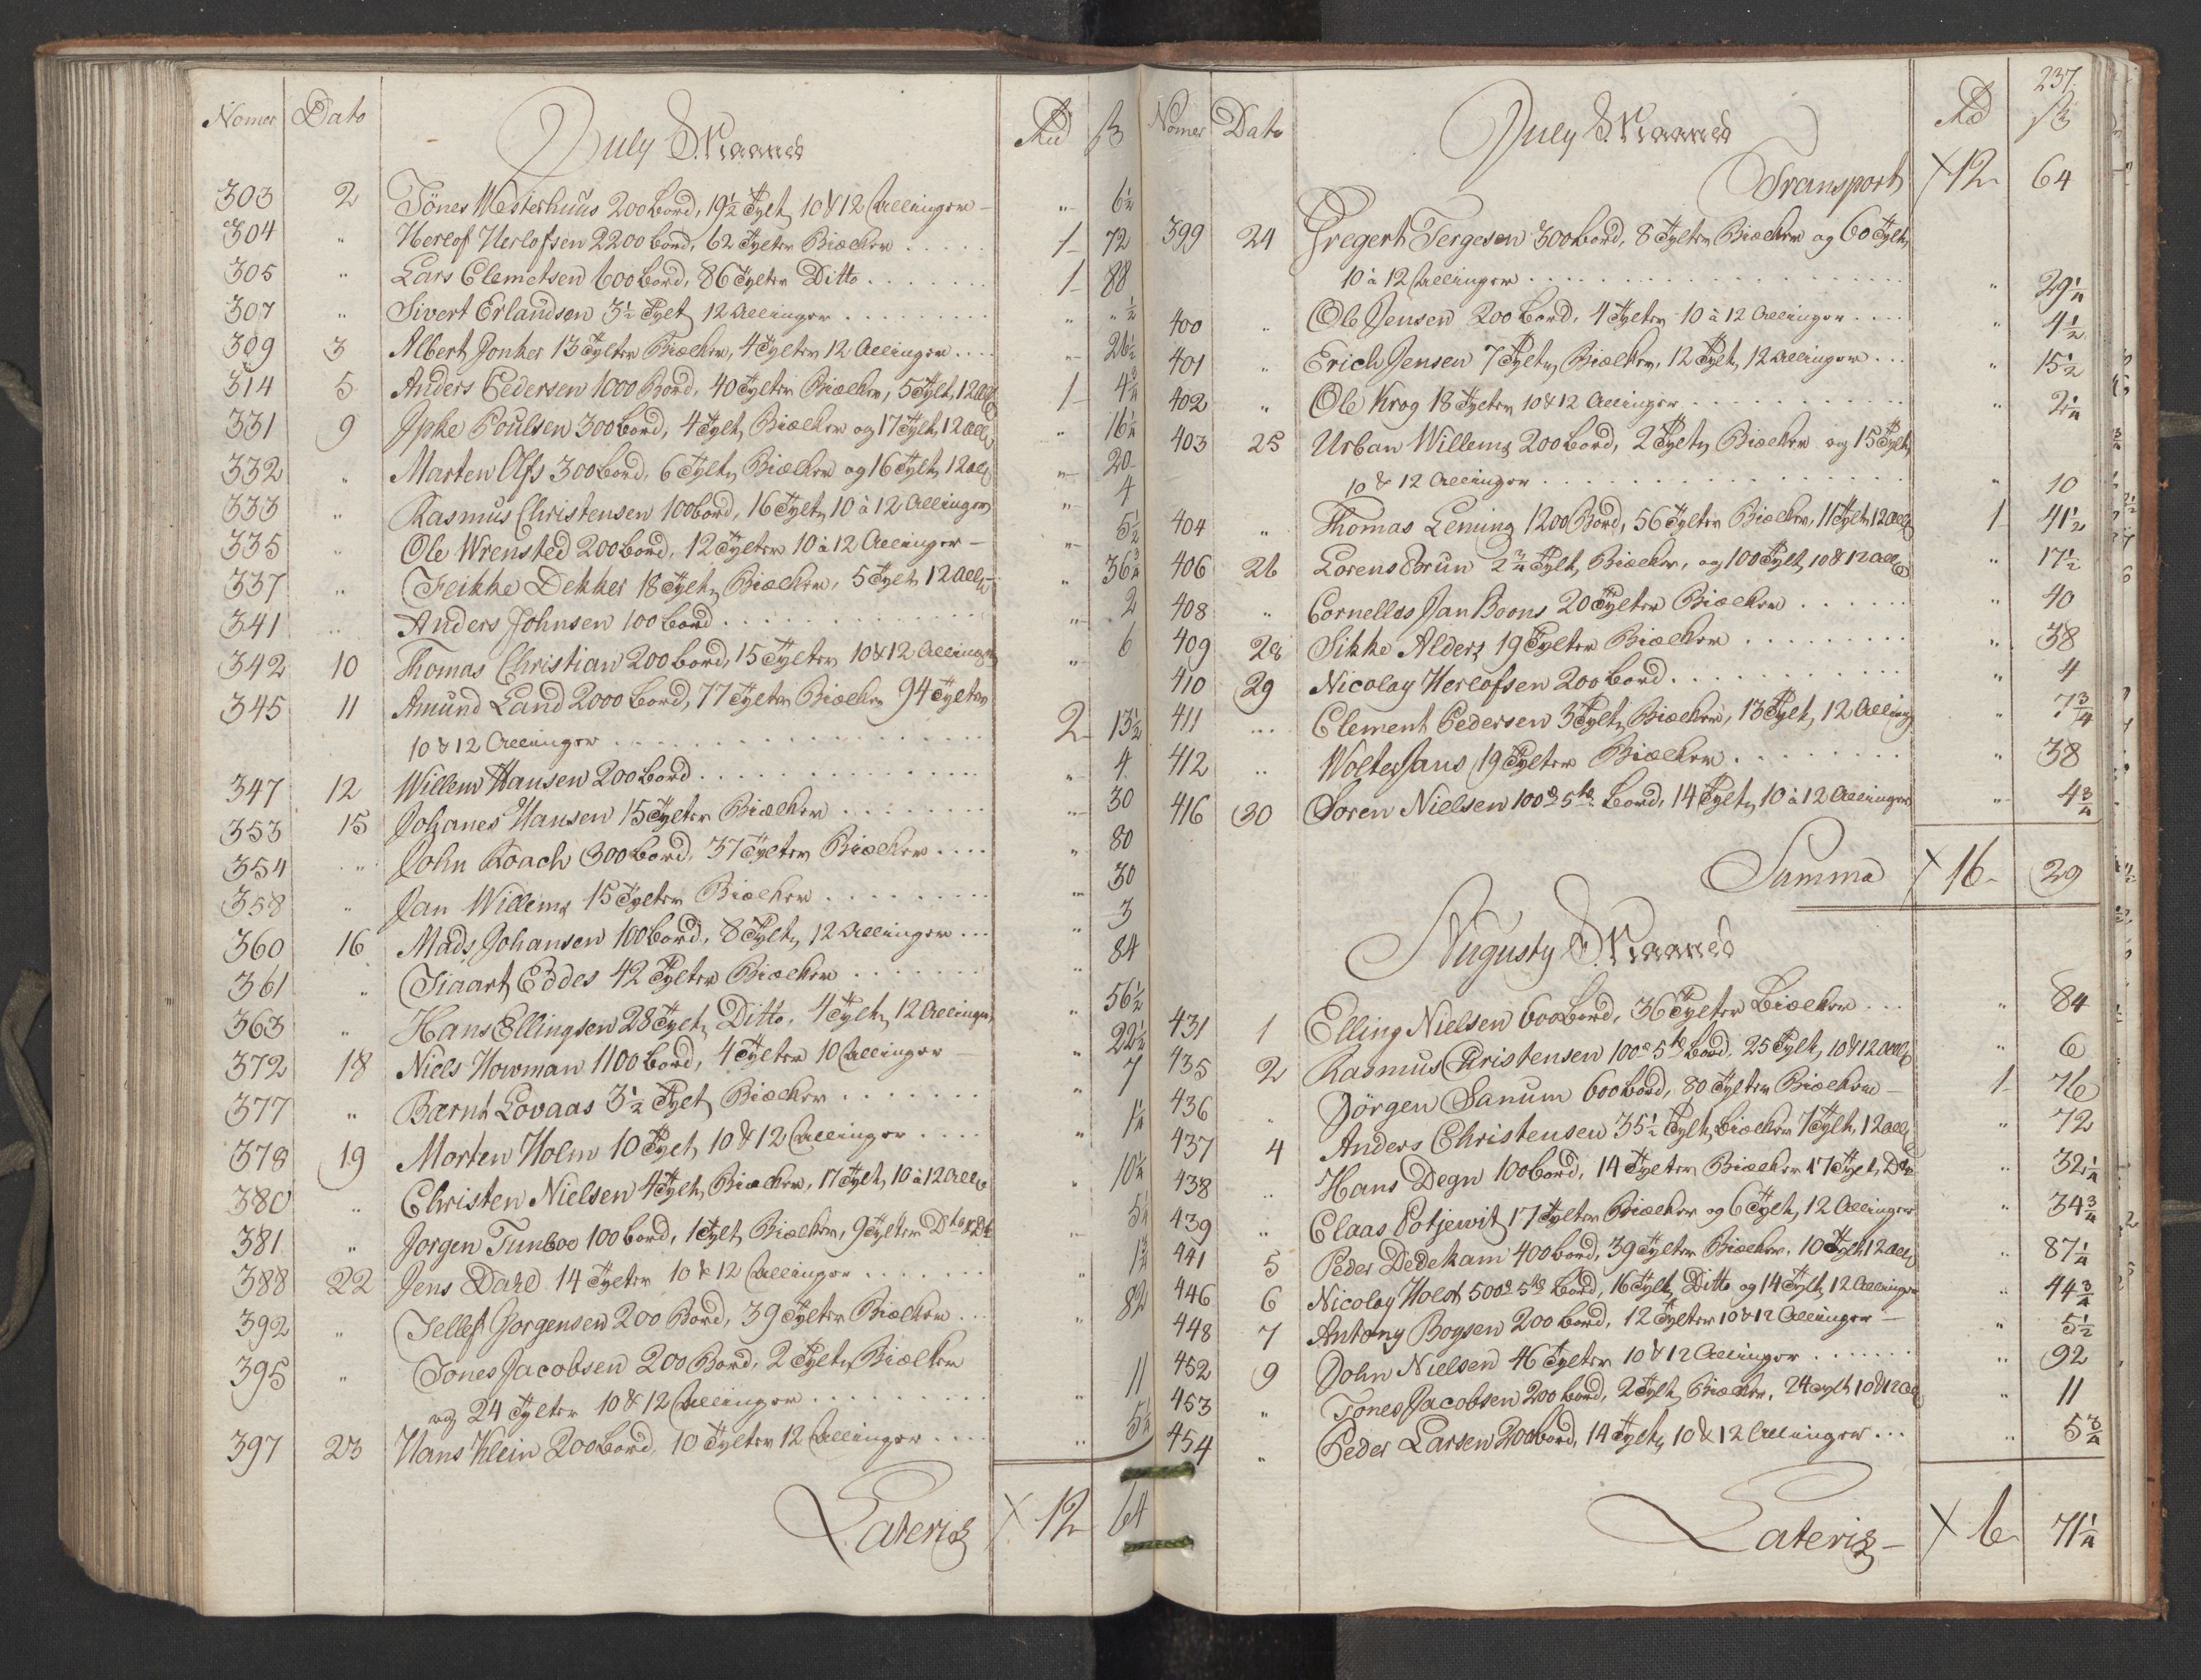 Nomer Dato July Maaned Rd ß
303 2 Tönes Westerhuus 200 bord, 19½ Tylt, 10 & 12 Allinger - " 6½
304 " Herlof Herlofsen 2200 bord, 62 Tylter Biælker . . . . . 1 72
305 " Lars Clemetsen 600 bord, 86 Tylter Ditto . . . . . . . 1 88
307 " Sivert Erlandsen 3½ Tylt 12 Allinger . . . . . . . . . " " ½
309 3 Albert Jonker 13 Tylter Biælker, 4 Tylter 12 Allinger . . . . " 26½
314 5 Anders Pedersen 1000 Bord, 40 Tylter Biælker, 5 Tylt, 12 All 1 4¾
331 9 Ipke Poulsen 300 bord, 4 Tylt, Biælker og 17 Tylt, 12 All " 16¼
332 " Marten Olfs 300 bord, 6 Tylt, Biælker og 16 Tylt, 12 all " 20
333 " Rasmus Christensen 100 bord, 16 Tylt, 10 à 12 Allinger " 4
335 " Ole Wrensted 200 bord, 12 Tylter 10 à 12 Allinger - " 5½
337 " Feikke Dekker 18 Tylt, Biælker, 5 Tylt, 12 All - " 36¾
341 " Anders Johnsen 100 bord . . . . . . . . . . . . " 2
342 10 Thomas Christian 200 bord, 15 Tylter 10 & 12 Allinger " 6
345 11 Amund Land 2000 bord, 77 Tylter Biælker 94 Tylter
10 & 12 Allinger . . . . . . . . . . . . . . . . 2 13½
347 12 Willem Hansen 200 bord . . . . . . . . . . . . . " 4
353 15 Johanes Hansen 15 Tylter Biælker . . . . . . . . " 30
354 " John Roach 300 bord, 37 Tylter Biælker . . . . " 80
358 " Jan Willems 15 Tylter Biælker . . . . . . . . . " 30
360 16 Mads Johansen 100 bord, 8 Tylt, 12 Allinger . . . " 3
361 " Siaart Eddes 42 Tylter Biælker . . . . . . . " 84
363 " Hans Ellingsen 28 Tylt, Ditto, 4 Tylt, 12 Allinger, " 56½
372 18 Niels Howman 1100 bord, 4 Tylter 10 Allinger - " 22½
377 " Bærnt Lovaas 3½ Tylt, Biælker . . . . . . . " 7
378 19 Morten Holm 10 Tylt, 10 & 12 Allinger . . . . " 1¼
380 " Christen Nielsen 4 Tylt, Biælker, 17 Tylt, 10 à 12 All " 10¼
381 " Jorgen Tunboe 100 bord, 1 Tylt Biælker, 9 Tylter " 5¼
388 22 Jens Dahl 14 Tylter 10 & 12 Allinger . . . . . . . " 1¾
392 " Tellef Jorgensen 200 Bord, 39 Tylter Biælker . . . " 82
395 " Tönes Jacobsen 200 Bord, 2 Tylt, Biælker
og 24 Tylter 10 & 12 Allinger . . . . . . . . . " 11
397 23 Hans Klein 200 bord, 10 Tylter 12 Allinger . . . . " 5½
Lateris X 12 64
237.
Nomer Dato July Maaned Rd ß
Transport X 12 64
399 24 Gregert Tergesen 300 bord, 8 Tylter Biælker og 60 Tylt,
10 à 12 Allinger . . . . . . . . . . . . . . . . " 29¼
400 " Ole Jensen 200 bord, 4 Tylter 10 à 12 Allinger . . . . " 4½
401 " Erich Jensen 7 Tylt, Biælker, 12 Tylt, 12 Allinger . . . " 15½
402 " Ole Krog 18 Tylter 10 & 12 Allinger . . . . . . . . . . " 2¼
403 25 Urban Willems 200 bord, 2 Tylt, Biælker og 15 Tylt,
10 & 12 Allinger . . . . . . . . . . . . . . . . " 10
404 " Thomas Lening 1200 Bord, 56 Tylter Biælker, 11 Tylt 12 All 1 41½
406 26 Lorens Brun 2¾ Tylt, Biælker, og 100 Tylt, 10 & 12 All " 17½
408 " Cornellos Jan Boons 20 Tylter Biælker . . . . . . " 40
409 28 Sikke Alders 19 Tylter Biælker . . . . . . . . . " 38
410 29 Nicolay Herlofsen 200 bord . . . . . . . . . . . . " 4
411 ... Clement Pedersen 3 Tylt, Biælker, 13 Tylt, 12 Alling " 7¾
412 .. Wolter Jans 19 Tylter Biælker . . . . . . . . " 38
416 30 Soren Nielsen 100 & 5te bord, 14 Tylt, 10 à 12 Allinger " 4¾
Summa X 16 29
Augusty Maaned
431 1 Elling Nielsen 600 bord, 36 Tylter Biælker . . . " 84
435 2 Rasmus Christensen 100 & 5te bord, 25 Tylt, 10 & 12 All " 6
436 " Jörgen Sanum 600 bord, 80 Tylter Biælker - 1 76
437 4 Anders Christensen 35½ Tylt, Biælker 7 Tylt, 12 all " 72
438 .. Hans Degn 100 bord, 14 Tylter Biælker 17 Tylt, Dto " 32¼
439 .. Claas Potjewit 17 Tylter Biælker og 6 Tylt, 12 Allinger " 34¾
441 5 Peder Dedekam 400 bord, 39 Tylter Biælker, 10 Tylt 12 All " 87¼
446 6 Nicolay Holst 500 & 5te bord, 16 Tylt, Ditto og 14 Tylt, 12 Allinger " 44¾
448 7 Antony Boysen 200 bord, 12 Tylter 10 & 12 Allinger - " 5½
452 9 John Nielsen 46 Tylter 10 & 12 Allinger . . . . . . . " 92
453 " Tönes Jacobsen 200 bord, 2 Tylt, Biælker, 24 Tylt 10 & 12 All " 11
454 " Peder Larsen 200 bord, 14 Tylt, 10 & 12 Allinger . . . " 5¾
Lateris - X 6 71¼